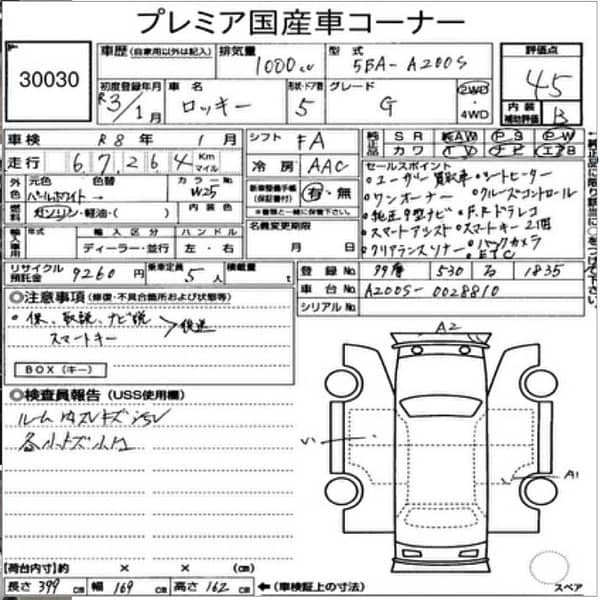 プレミア国産車コーナー
30030
車歴 (自家用以外は記入) 排気量 1000cc 型式 5BA-A200S 評価点 4.5
初度登録年月 R3/1月 車名 ロッキー 形状・ドア数 5 グレード G 2WD・4WD 内装補助評価 B
車検 R8年 1月 シフト FA 装備品 SR 純AW PS PW
走行 67,264 Km マイル 冷房 AAC カワ TV ナビ エアB
外色 元色 パールホワイト→ 色替 カラーNo. W25 新車整備手帳 (保証書付) 有・無
燃料 ガソリン・軽油・( ) 内装色 ※記録簿と一緒に保管下さい。
輸入車用 年式 輸入区分 ディーラー・並行 ハンドル 左・右 名義変更期限 月 日
セールスポイント
・ユーザー買取車 ・シートヒーター
・ワンオーナー ・クルーズコントロール
・純正9型ナビ ・F.Rドラレコ
・スマートアシスト ・スマートキー2個
・クリアランスソナー ・バックカメラ
・ETC
リサイクル預託金 9260円 乗車定員 5人 積載量 t 登録No. 530 1835
車台No. A200S-0028810
シリアルNo.
◎注意事項 (修復・不具合箇所および状態等)
・保、取説、ナビ説 スマートキー > 後送
BOX (キー)
◎検査員報告 (USS使用欄)
ルーム内スレキズ
各小キズ小凹
A2
A1
【荷台内寸】約 × × (cm)
長さ 399 cm 幅 169 cm 高さ 162 cm ←(車検証上の寸法)
スペア